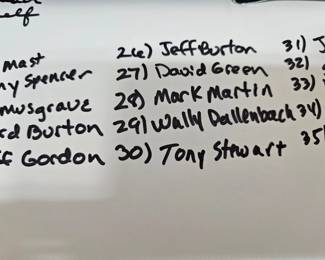 elf
mast 26) Jeff Burton 31) J
ny Spencer 27) David Green 32)
musgrave 28) Mark Martin 33)
rd Burton 29) Wally Dallenbach 34)
ff Gordon 30) Tony Stewart 35)